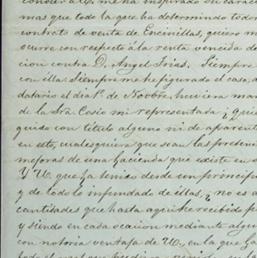 me ha inspirado en carac
mas que todo la que ha determindo todo
contrato de venta de Encinillas, quiero m
ocurre con respecto á la renta vencida d
cion contra D. Angel Frias. Siempre
con ella siempre me he figurado el caso, d
datario el dia 1º de Novbre. hubiera mar
de la Sra Cosio mi representada; ¿Qui
quido con título alguno ni de aparent
en esto, cualesquiera que sean las preten
mejoras de una hacienda que existe en
Y V. que ha tenido desde un principi
y de todo lo infundado de ellas, ¿no es a
cantidades que hasta aqui he recibido p
y siendo en esa ocasion mediante algu
con notoria ventaja de V., en la que ha